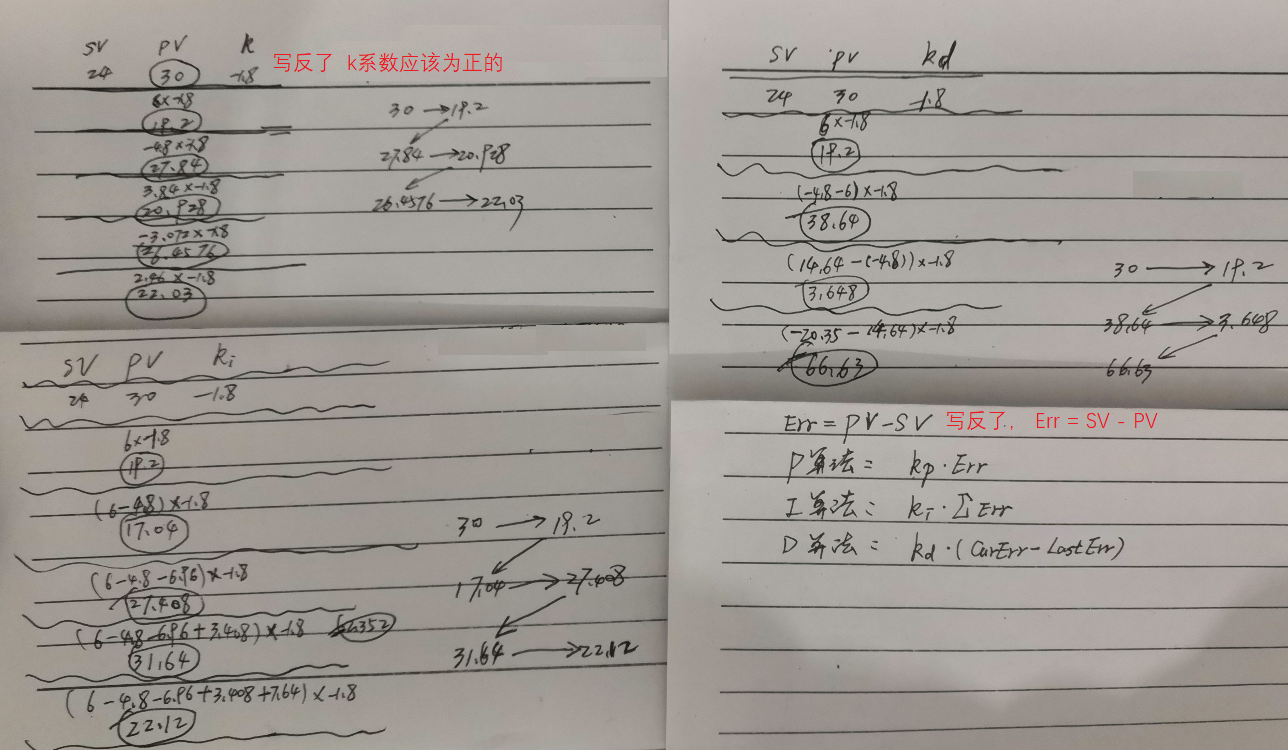 SV PV K
24 30 -1.8 写反了 k系数应该为正的
6×-1.8
19.2
-4.8×-1.8
27.84
3.84×-1.8
20.928
-3.072×-1.8
26.4576
2.46×-1.8
22.03
30→19.2
27.84→20.928
26.4576→22.03
SV PV Ki
24 30 -1.8
6×-1.8
19.2
(6-4.8)×-1.8
17.04
(6-4.8-6.96)×-1.8
27.408
(6-4.8-6.96+3.408)×-1.8
31.64
(6-4.8-6.96+3.408+7.64)×-1.8
22.12
30→19.2
17.04→27.408
31.64→22.12
SV PV Kd
24 30 -1.8
6×-1.8
19.2
(-4.8-6)×-1.8
38.64
(14.64-(-4.8))×-1.8
3.648
(-20.35-14.64)×-1.8
66.63
30→19.2
38.64→3.648
66.63
Err=PV-SV 写反了， Err = SV - PV
P算法= kp·Err
I算法= ki·∑Err
D算法= kd·(CurErr-LastErr)